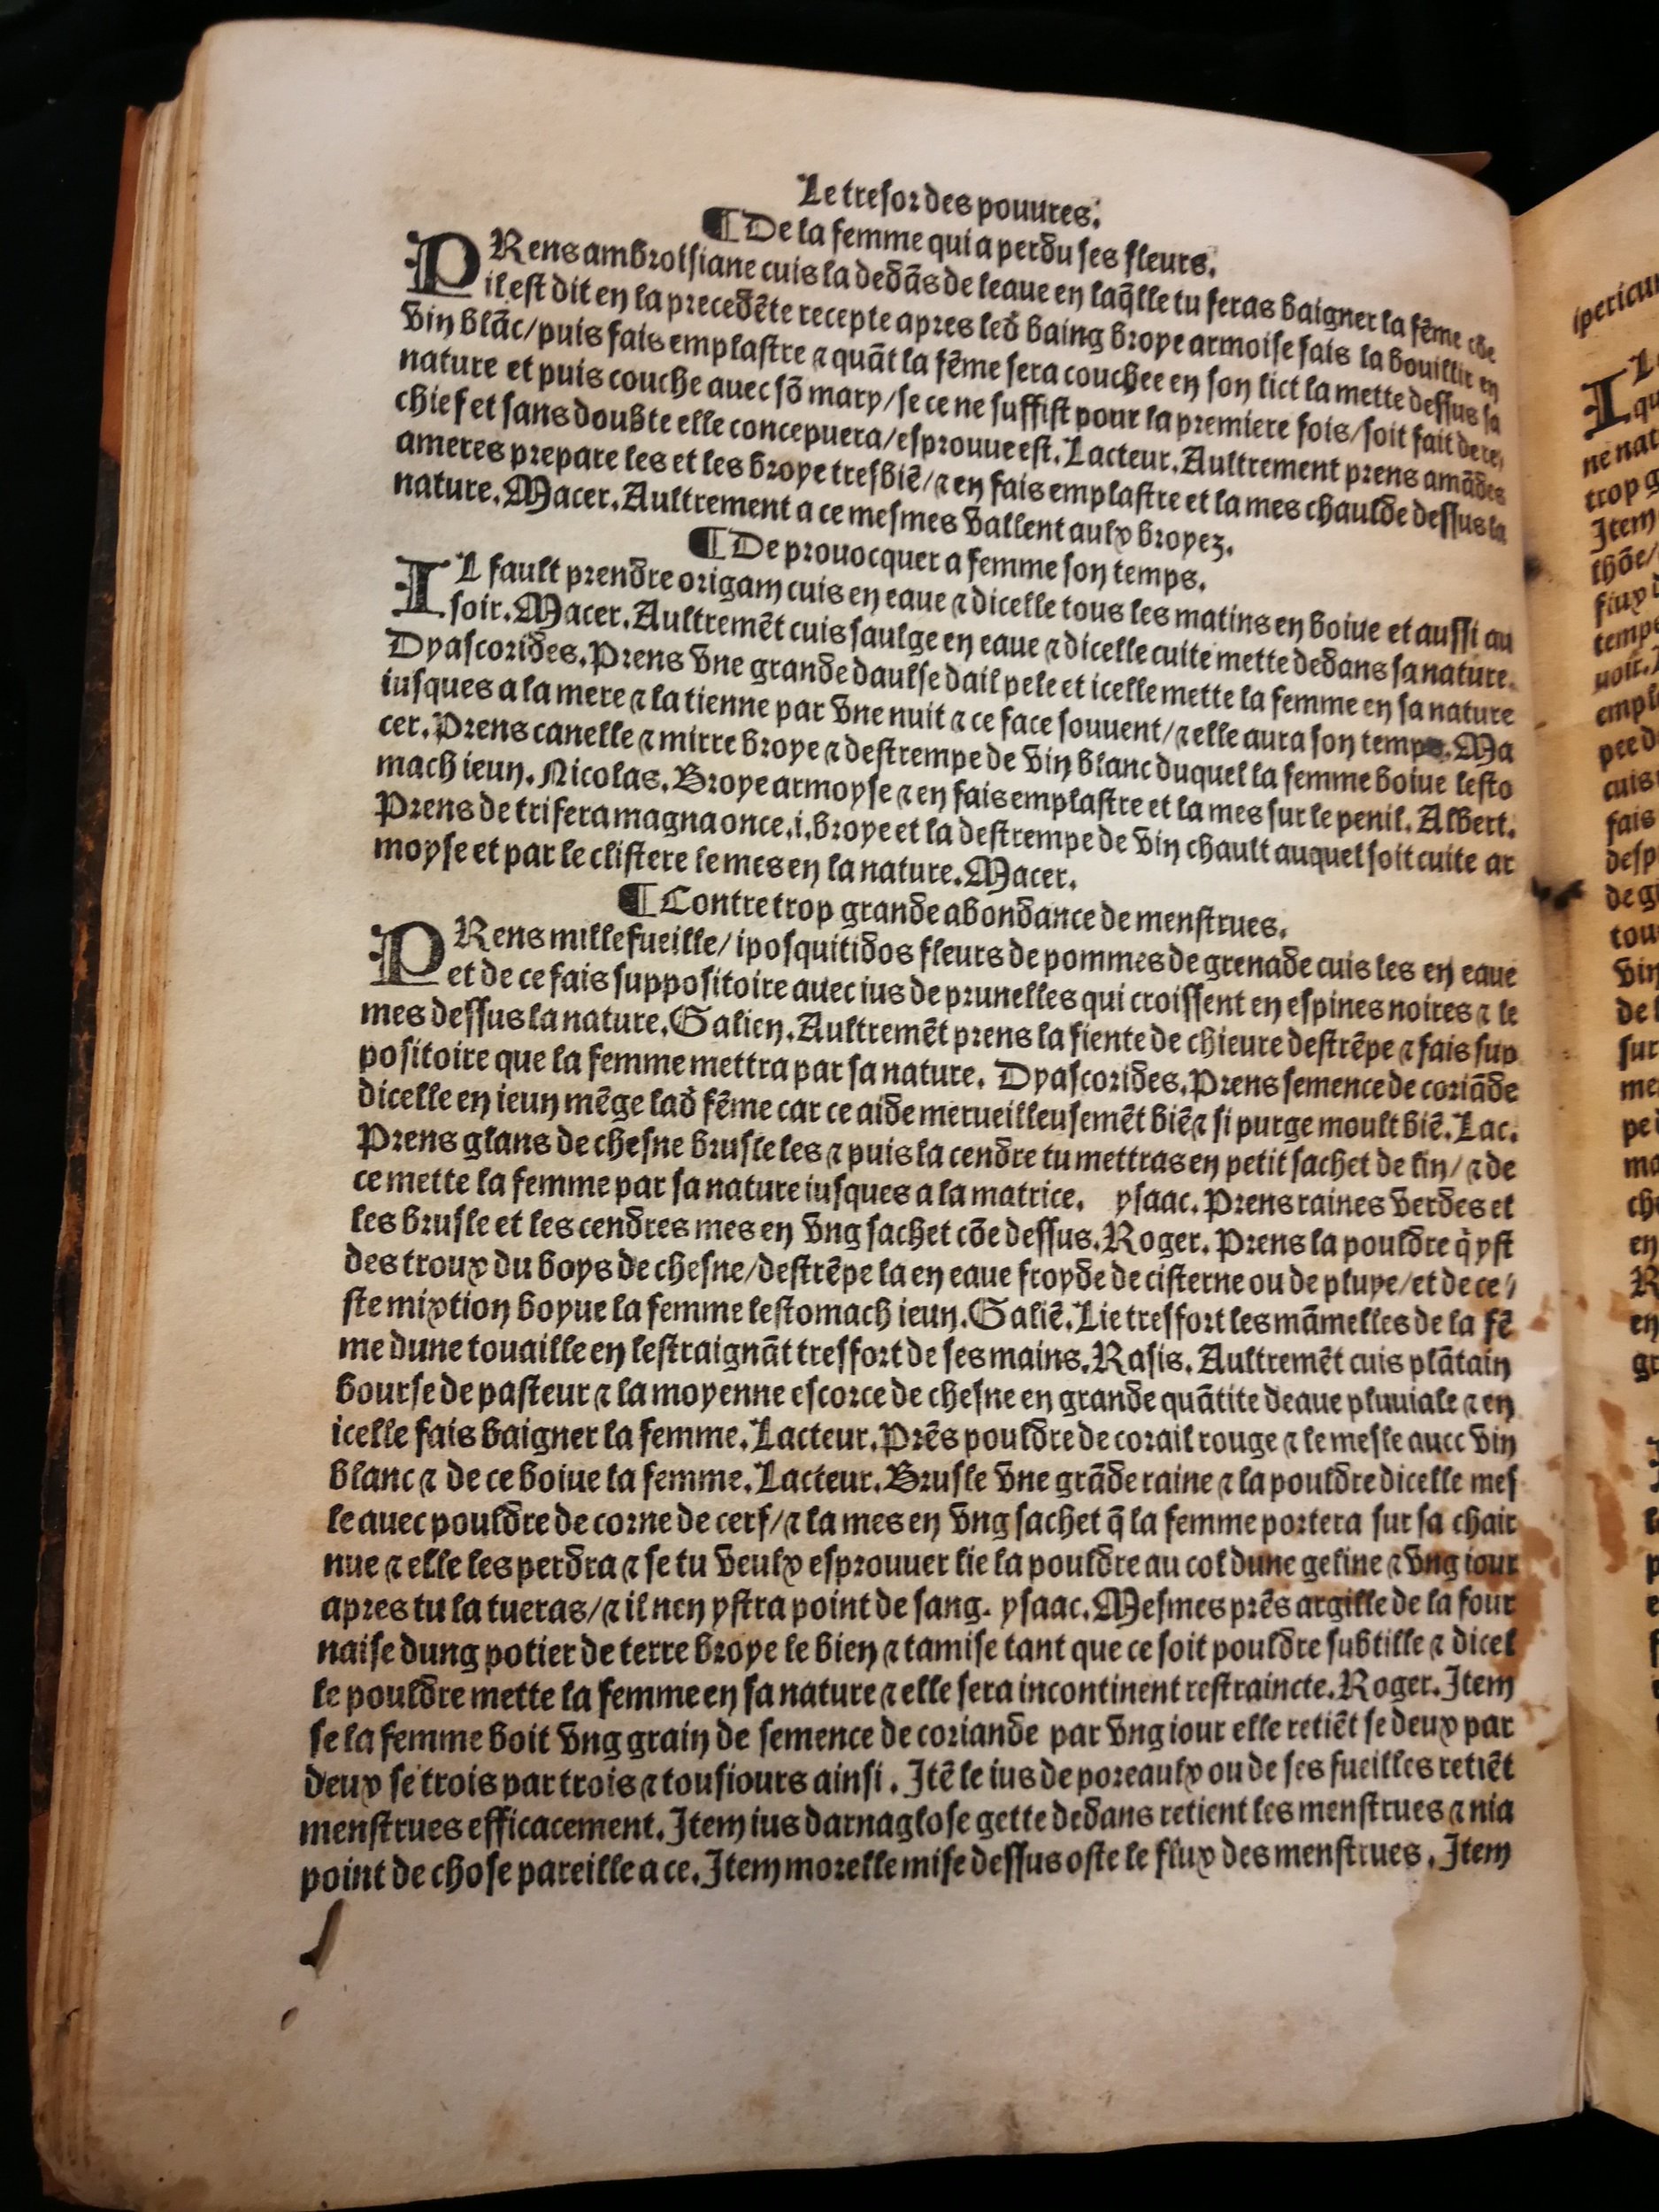 Le tresor des pouures.
¶ De la femme qui a perdu ses fleurs.
PRens ambroisiane cuis la dedãs de leaue en laq̃lle tu feras baigner la fẽme cõe
il est dit en la precedẽte recepte apres led baing broye armoise fais la bouillir en
vin blãc/puis fais emplastre ⁊ quãt la fẽme sera couchee en son lict la mette dessus sa
nature et puis couche auec sõ mary/se ce ne suffist pour la premiere fois/soit fait de re/
chief et sans doubte elle concepuera/esprouue est. Lacteur. Aultrement prens amãdes
ameres prepare les et les broye tresbiẽ/⁊ en fais emplastre et la mes chaulde dessus la
nature. Macer. Aultrement a ce mesmes vallent aulx broyez.
¶ De prouocquer a femme son temps.
IL fault prendre origam cuis en eaue ⁊ dicelle tous les matins en boiue et aussi au
soir. Macer. Aultremẽt cuis saulge en eaue ⁊ dicelle cuite mette dedans sa nature.
Dyascorides. Prens vne grande daulse dail pele et icelle mette la femme en sa nature
iusques a la mere ⁊ la tienne par vne nuit ⁊ ce face souuent/⁊ elle aura son temps. Ma
cer. Prens canelle ⁊ mirre broye ⁊ destrempe de vin blanc duquel la femme boiue lesto
mach ieun. Nicolas. Broye armoyse ⁊ en fais emplastre et la mes sur le penil. Albert.
Prens de trifera magna once .i. broye et la destrempe de vin chault auquel soit cuite ar
moyse et par le clistere le mes en la nature. Macer.
¶ Contre trop grande abondance de menstrues.
PRens millefueille/ iposquitidos fleurs de pommes de grenade cuis les en eaue
et de ce fais suppositoire auec ius de prunelles qui croissent en espines noires ⁊ le
mes dessus la nature. Galien. Aultremẽt prens la fiente de chieure destrẽpe ⁊ fais sup
positoire que la femme mettra par sa nature. Dyascorides. Prens semence de coriãde
dicelle en ieun mẽge lad fẽme car ce aide merueilleusemẽt biẽ ⁊ si purge moult biẽ. Lac.
Prens glans de chesne brusle les ⁊ puis la cendre tu mettras en petit sachet de lin/ ⁊ de
ce mette la femme par sa nature iusques a la matrice. ysaac. Prens raines verdes et
les brusle et les cendres mes en vng sachet cõe dessus. Roger. Prens la pouldre q̃ yst
des troux du boys de chesne/destrẽpe la en eaue froyde de cisterne ou de pluye/et de ce/
ste mixtion boyue la femme lestomach ieun. Galiẽ. Lie tresfort les mãmelles de la fẽ
me dune touaille en lestraignãt tresfort de ses mains. Rasis. Aultremẽt cuis plãtain
bourse de pasteur ⁊ la moyenne escorce de chesne en grande quãtite deaue pluuiale ⁊ en
icelle fais baigner la femme. Lacteur. Prẽs pouldre de corail rouge ⁊ le mesle auec vin
blanc ⁊ de ce boiue la femme. Lacteur. Brusle vne grãde raine ⁊ la pouldre dicelle mes
le auec pouldre de corne de cerf/⁊ la mes en vng sachet q̃ la femme portera sur sa chair
nue ⁊ elle les perdra ⁊ se tu veulx esprouuer lie la pouldre au col dune geline ⁊ vng iour
apres tu la tueras/⁊ il nen ystra point de sang. ysaac. Mesmes prẽs argille de la four
naise dung potier de terre broye le bien ⁊ tamise tant que ce soit pouldre subtille ⁊ dicel
le pouldre mette la femme en sa nature ⁊ elle sera incontinent restraincte. Roger. Item
se la femme boit vng grain de semence de coriande par vng iour elle retiẽt se deux par
deux se trois par trois ⁊ tousiours ainsi. Itẽ le ius de poreaulx ou de ses fueilles retiẽt
menstrues efficacement. Item ius darnaglose gette dedans retient les menstrues ⁊ nia
point de chose pareille a ce. Item morelle mise dessus oste le flux des menstrues. Item